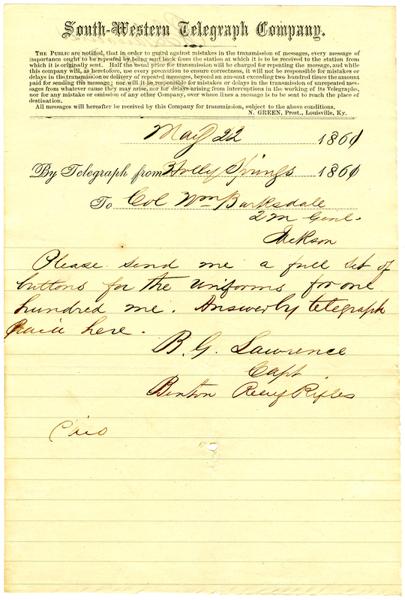 South-Western Telegraph Company.
THE PUBLIC are notified, that in order to guard against mistakes in the transmission of messages, every message of
importance ought to be repeated by being sent back from the station at which it is to be received to the station from
which it is originally sent. Half the usual price for transmission will be charged for repeating the message, and while
this company will, as heretofore, use every precaution to ensure correctness, it will not be responsible for mistakes or
delays in the transmission or delivery of repeated messages, beyond an amount exceeding two hundred times the amount
paid for sending the message; nor will it be responsible for mistakes or delays in the transmission of unrepeated mes-
sages from whatever cause they may arise, nor for delays arising from interruptions in the working of its Telegraphs,
nor for any mistake or omission of any other Company, over whose lines a message is to be sent to reach the place of
destination.
All messages will hereafter be received by this Company for transmission, subject to the above conditions.
N. GREEN, Prest., Louisville, Ky.
May 22 1861
By Telegraph from Holly Springs 1861
To Col Wm Barksdale
2 M Genl.
Jackson
Please send me a full set of
buttons for the uniforms for one
hundred me. Answer by telegraph
paid here.
B. G. Lawrence
Capt.
Benton Rifles